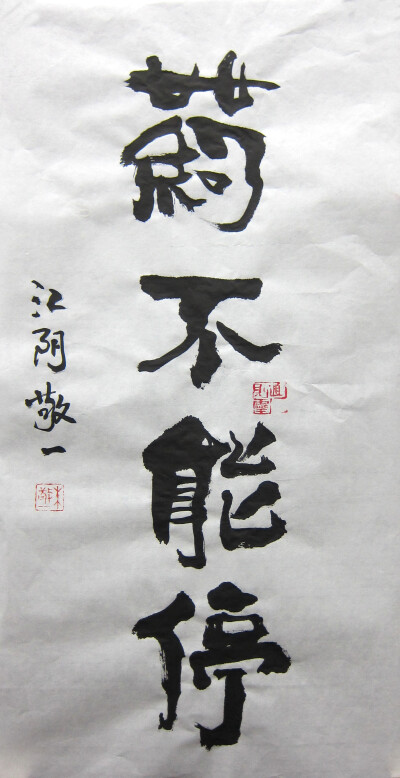 葯不能停
江阴敬一